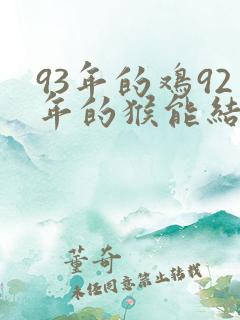 93年的鸡92
年的猴能结
董奇
未经同意禁止转载